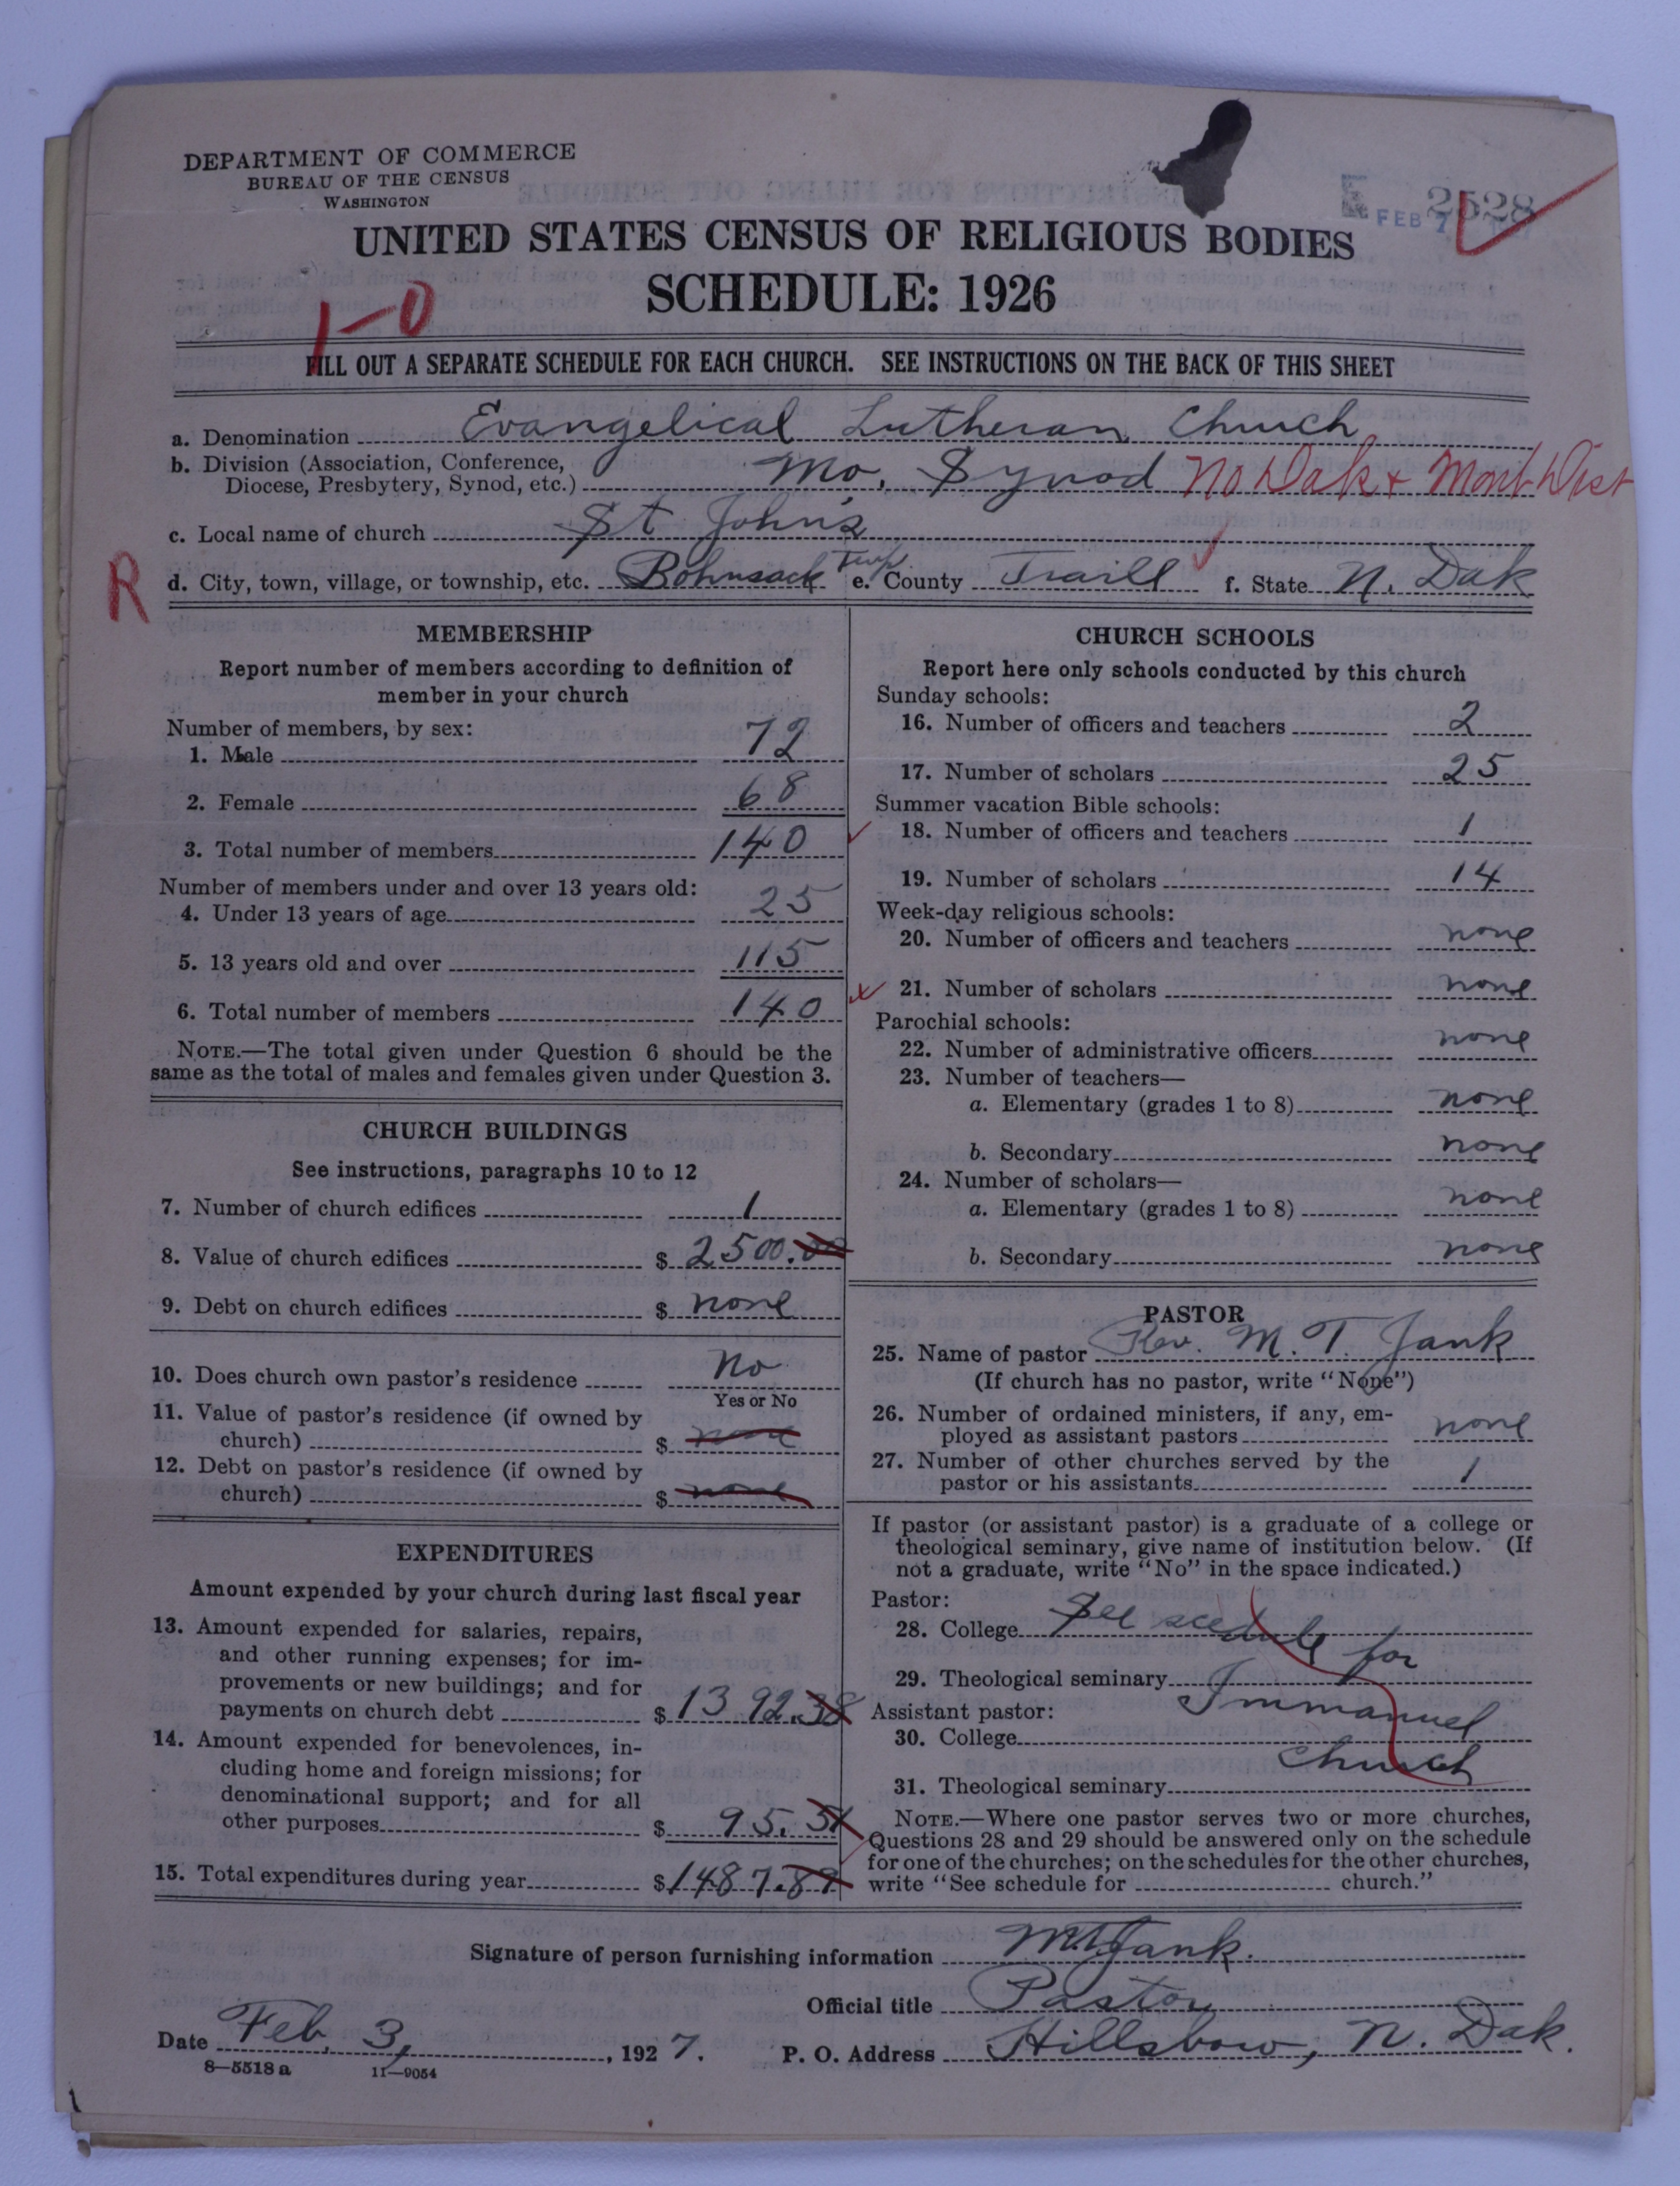 DEPARTMENT OF COMMERCE
BUREAU OF THE CENSUS
WASHINGTON
2528
FEB 7
UNITED STATES CENSUS OF RELIGIOUS BODIES
SCHEDULE: 1926
1-0
FILL OUT A SEPARATE SCHEDULE FOR EACH CHURCH. SEE INSTRUCTIONS ON THE BACK OF THIS SHEET
a. Denomination Evangelical Lutheran Church
b. Division (Association, Conference,
Diocese, Presbytery, Synod, etc.) Mo. Synod No Dak + Mont Dist
c. Local name of church St John's
R d. City, town, village, or township, etc. Bohnsack Twp. e. County Traill f. State N. Dak
MEMBERSHIP
Report number of members according to definition of
member in your church
Number of members, by sex:
1. Male 72
2. Female 68
3. Total number of members 140
Number of members under and over 13 years old:
4. Under 13 years of age 25
5. 13 years old and over 115
6. Total number of members 140
NOTE.—The total given under Question 6 should be the
same as the total of males and females given under Question 3.
CHURCH BUILDINGS
See instructions, paragraphs 10 to 12
7. Number of church edifices 1
8. Value of church edifices $ 2500.00
9. Debt on church edifices $ none
10. Does church own pastor's residence No
Yes or No
11. Value of pastor's residence (if owned by
church) $ none
12. Debt on pastor's residence (if owned by
church) $ none
EXPENDITURES
Amount expended by your church during last fiscal year
13. Amount expended for salaries, repairs,
and other running expenses; for im-
provements or new buildings; and for
payments on church debt $ 1392.38
14. Amount expended for benevolences, in-
cluding home and foreign missions; for
denominational support; and for all
other purposes $ 95.51
15. Total expenditures during year $ 1487.89
CHURCH SCHOOLS
Report here only schools conducted by this church
Sunday schools:
16. Number of officers and teachers 2
17. Number of scholars 25
Summer vacation Bible schools:
18. Number of officers and teachers 1
19. Number of scholars 14
Week-day religious schools:
20. Number of officers and teachers none
21. Number of scholars none
Parochial schools:
22. Number of administrative officers none
23. Number of teachers—
a. Elementary (grades 1 to 8) none
b. Secondary none
24. Number of scholars—
a. Elementary (grades 1 to 8) none
b. Secondary none
PASTOR
25. Name of pastor Rev. M. T. Jank
(If church has no pastor, write "None")
26. Number of ordained ministers, if any, em-
ployed as assistant pastors none
27. Number of other churches served by the
pastor or his assistants 1
If pastor (or assistant pastor) is a graduate of a college or
theological seminary, give name of institution below. (If
not a graduate, write "No" in the space indicated.)
Pastor:
28. College See scedule for
29. Theological seminary Immanuel
Assistant pastor:
30. College church
31. Theological seminary
NOTE.—Where one pastor serves two or more churches,
Questions 28 and 29 should be answered only on the schedule
for one of the churches; on the schedules for the other churches,
write "See schedule for church."
Signature of person furnishing information M.T. Jank.
Official title Pastor
Date Feb. 3, 1927. P. O. Address Hillsboro, N. Dak.
8—5518 a 11—9054